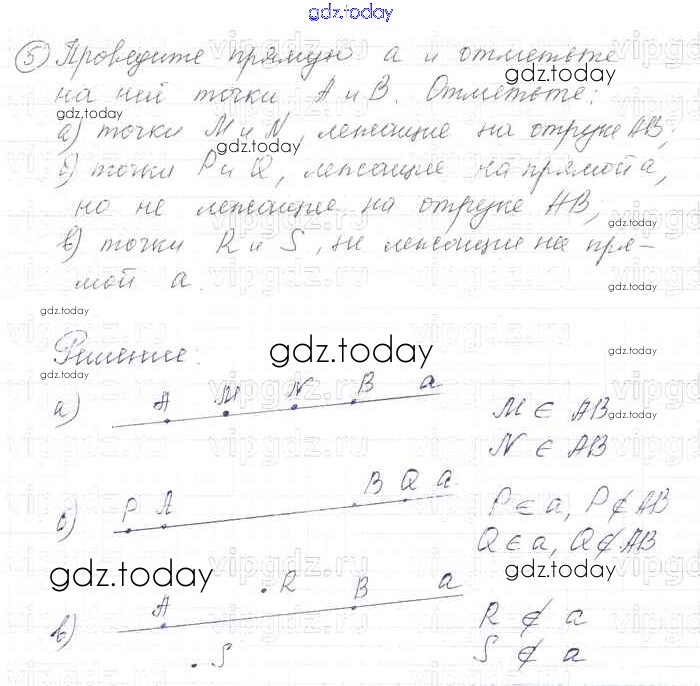 gdz.today
5 Проведите прямую a и отметьте
gdz.today
на ней точки A и B. Отметьте:
gdz.today
а) точки M и N, лежащие на отрезке AB;
gdz.today
б) точки P и Q, лежащие на прямой a,
но не лежащие на отрезке AB;
gdz.today
в) точки R и S, не лежащие на пря-
мой a.
gdz.today
gdz.today
Решение:
gdz.today
а) A M N B a M ∈ AB
gdz.today
N ∈ AB
б) P A B Q a P ∈ a, P ∉ AB
gdz.today
Q ∈ a, Q ∉ AB
gdz.today
gdz.today
в) A R B a R ∉ a
S S ∉ a
vipgdz.ru